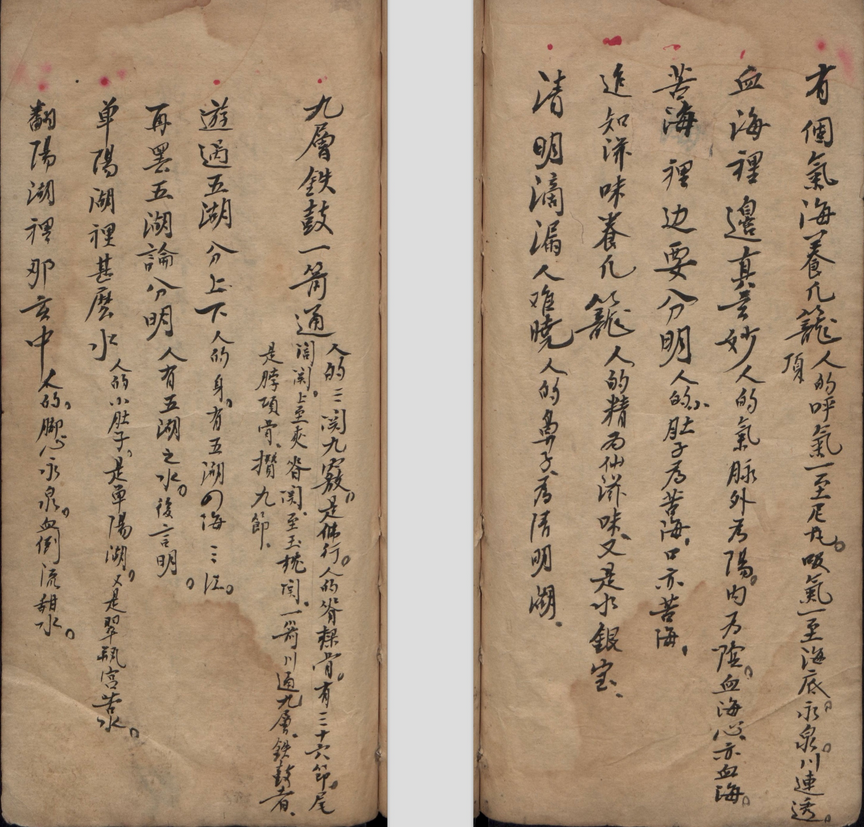 有個氣海養凡籠人的呼氣一至尼丸。吸氣一至海底。永泉。川連透。
頂
血海裡邊真玄妙人的氣脉外为陽。内为陰。血海心亦血海。
苦海裡边要分明人的小肚子为苦海。口亦苦海。
追知滋味養凡籠人的精为仙滋味又是水銀宝。
清明滴漏人难曉人的鼻子为清明湖。
九層鉄鼓一箭通人的三関九竅。是体行。人的脊樑骨。有三十六節。尾
閭関。上至夾脊関。至玉枕関。一箭川通九層。鉄鼓者。
是脖項骨。攢九節。
遊過五湖分上下人的身。有五湖の海三江。
再罢五湖論分明人有五湖之水。後言明。
单陽湖裡甚麼水人的小肚子。是单陽湖。又是翠瓶宫苦水。
鄱陽湖裡那亥中人的。脚心永泉。血倒流甜水。